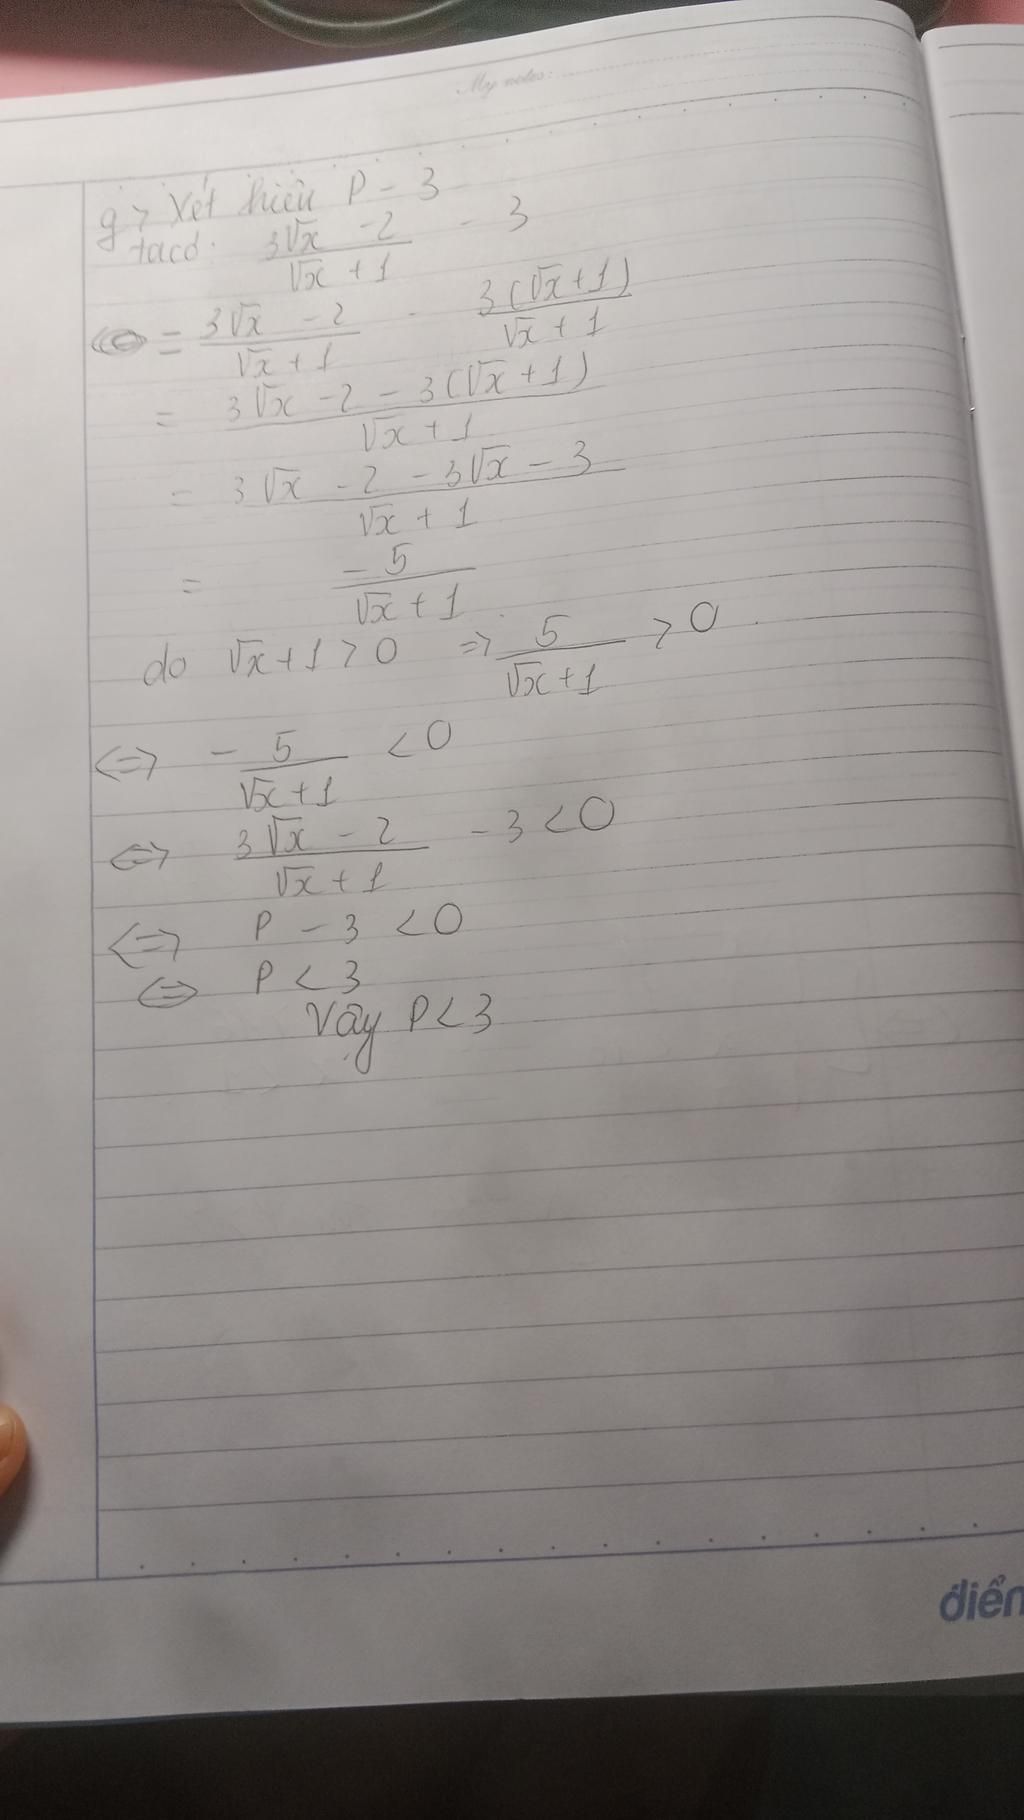 My notes:
g, Xét hiệu P - 3
tacó: (3√x - 2)/(√x + 1) - 3
= (3√x - 2)/(√x + 1) - 3(√x + 1)/(√x + 1)
= (3√x - 2 - 3(√x + 1))/(√x + 1)
= (3√x - 2 - 3√x - 3)/(√x + 1)
= -5/(√x + 1)
do √x + 1 > 0 => 5/(√x + 1) > 0
<=> -5/(√x + 1) < 0
<=> (3√x - 2)/(√x + 1) - 3 < 0
<=> P - 3 < 0
<=> P < 3
Vậy P < 3
điển